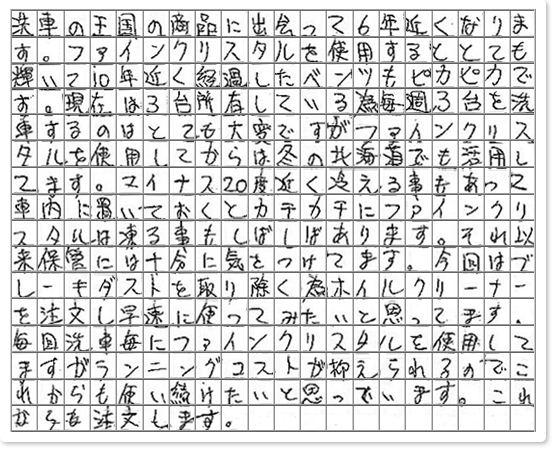 洗車の王国の商品に出会って6年近くなりま
す。ファインクリスタルを使用するととても
輝いて10年近く経過したベンツもピカピカで
す。現在は3台所有している為毎週3台を洗
車するのはとても大変ですがファインクリス
タルを使用してからは冬の北海道でも活用し
てます。マイナス20度近く冷える事もあって
車内に置いておくとカチカチにファインクリ
スタルは凍る事もしばしばあります。それ以
来保管には十分に気をつけてます。今回はブ
レーキダストを取り除く為ホイルクリーナー
を注文し早速に使ってみたいと思ってます。
毎回洗車毎にファインクリスタルを使用して
ますがランニングコストが抑えられるのでこ
れからも使い続けたいと思っています。これ
からも注文します。